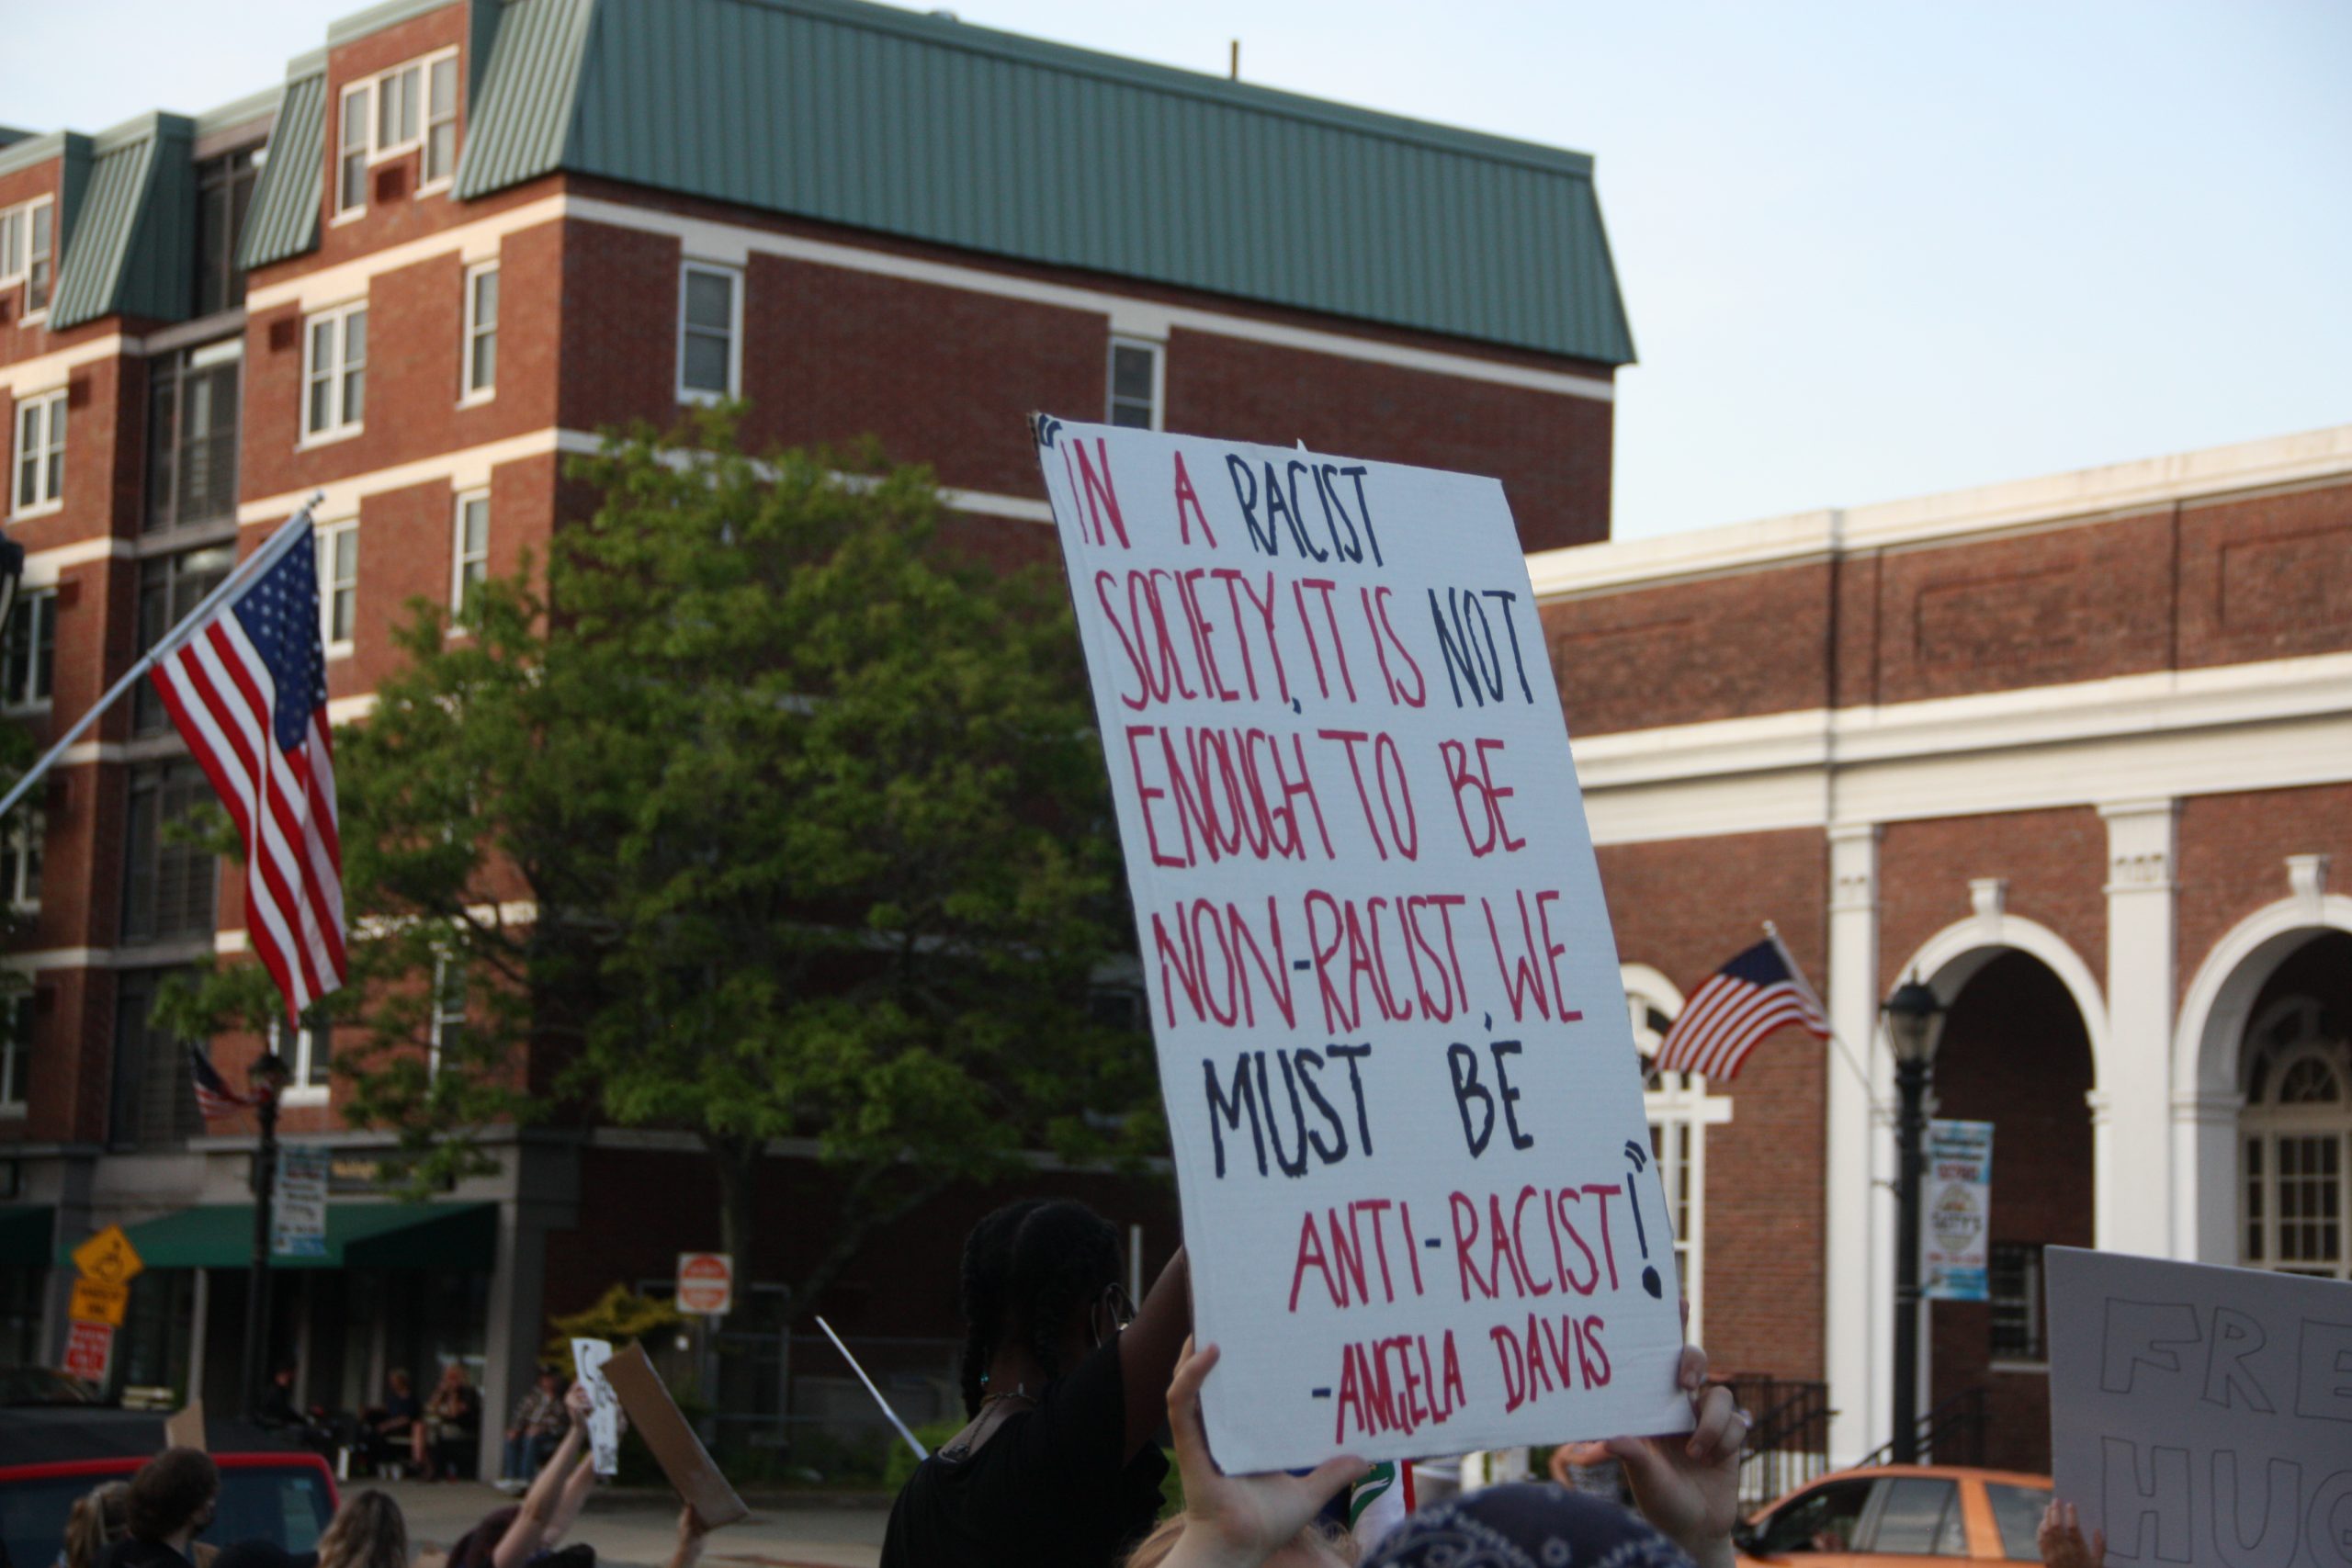 "IN A RACIST
SOCIETY, IT IS NOT
ENOUGH TO BE
NON-RACIST, WE
MUST BE
ANTI-RACIST!"
-ANGELA DAVIS
FRE
HUG